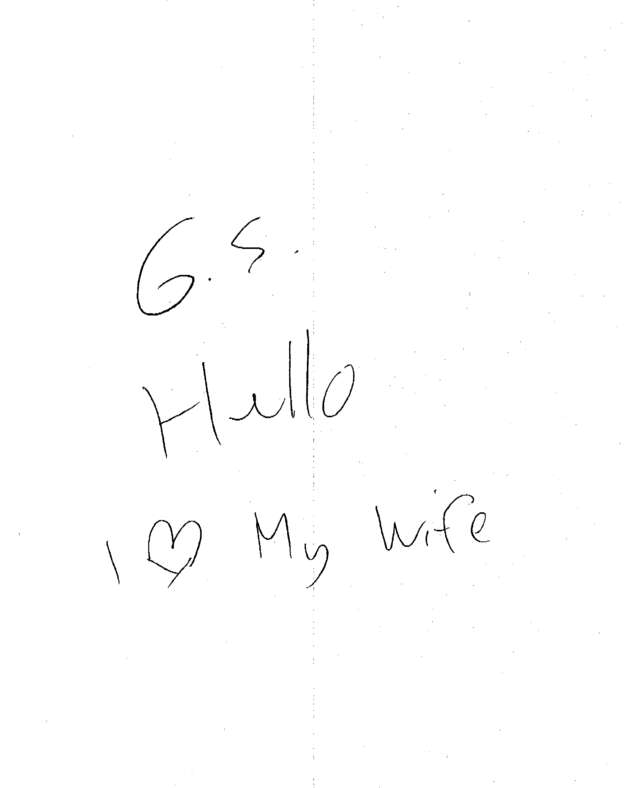 G.S.
Hello
I ♡ My Wife